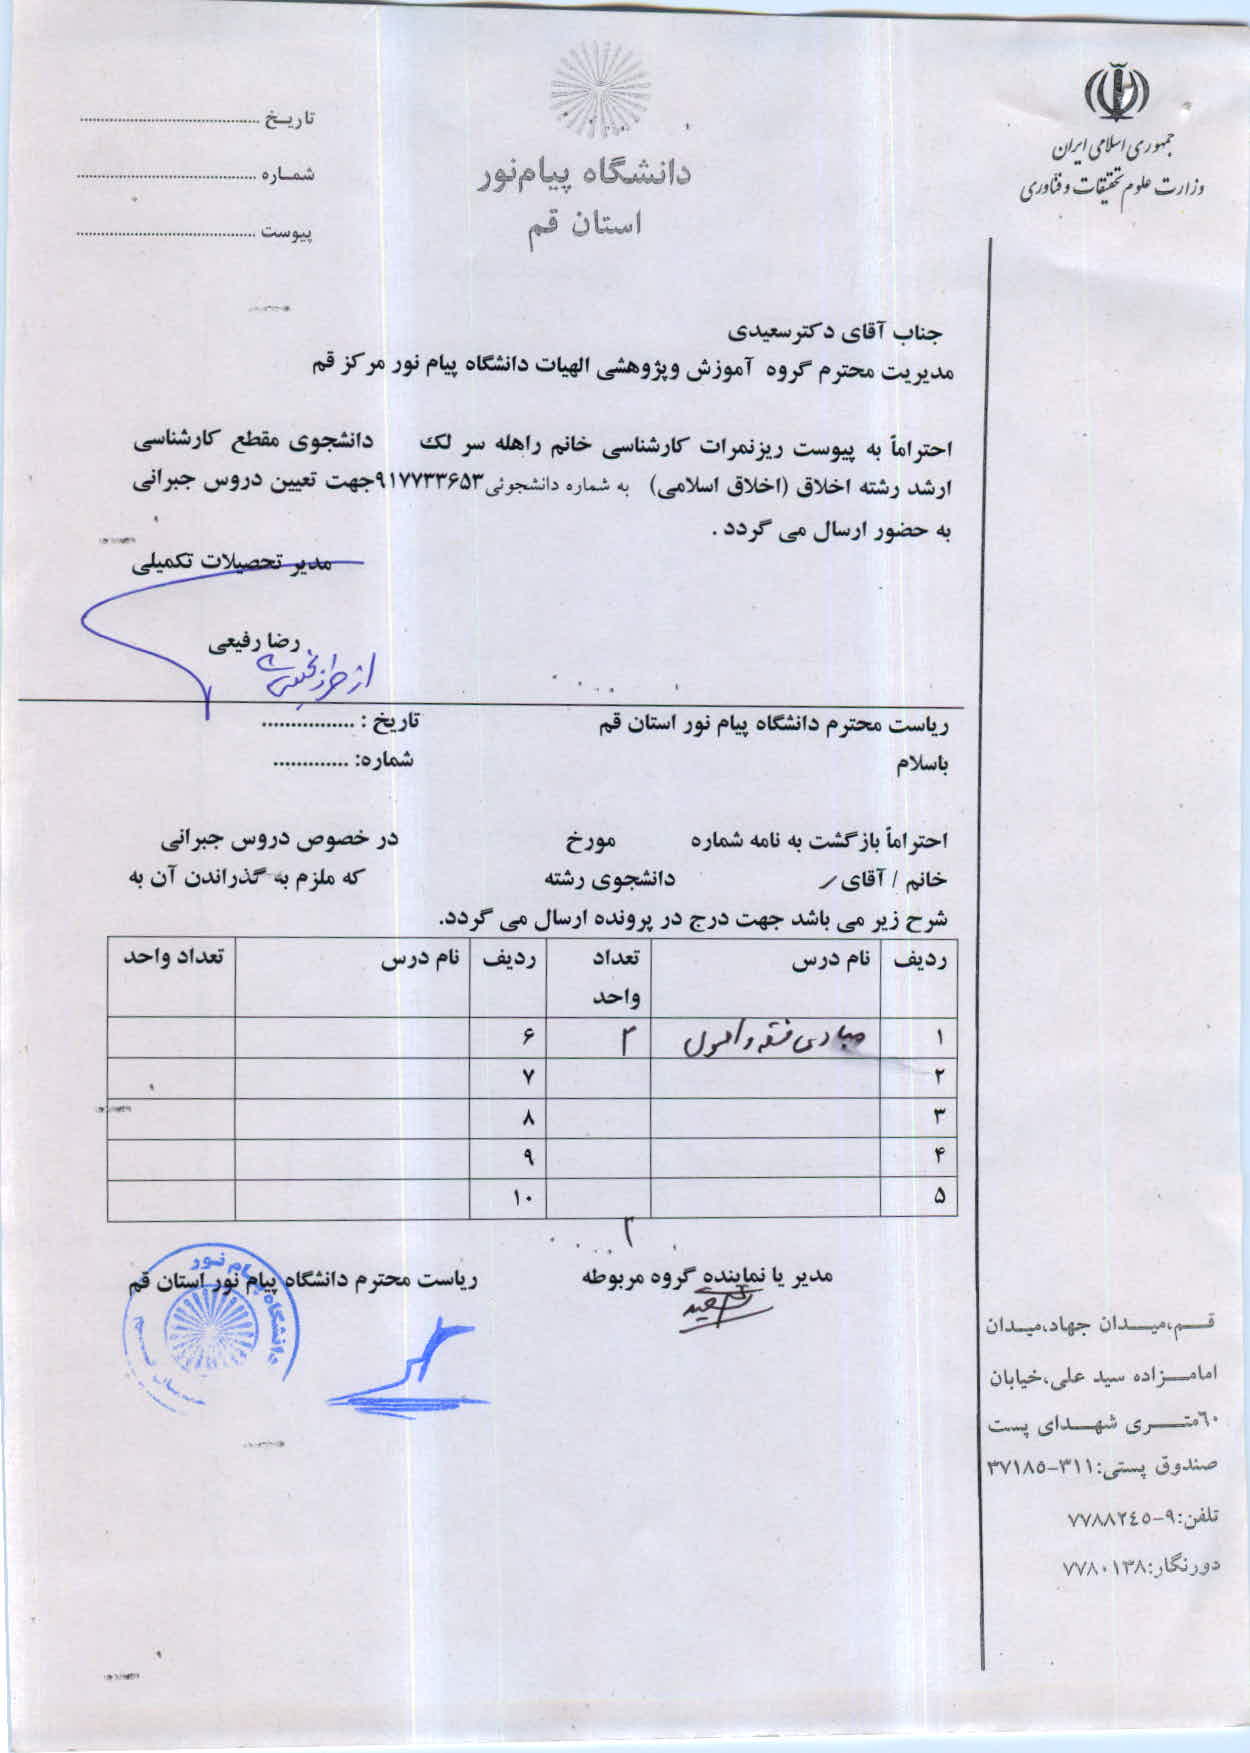 جمهوری اسلامی ایران
وزارت علوم تحقیقات و فناوری
دانشگاه پیام‌نور
استان قم
تاریخ ........................................
شماره ........................................
پیوست ........................................
جناب آقای دکترسعیدی
مدیریت محترم گروه آموزش وپژوهشی الهیات دانشگاه پیام نور مرکز قم
احتراماً به پیوست ریزنمرات کارشناسی خانم راهله سر لک دانشجوی مقطع کارشناسی
ارشد رشته اخلاق (اخلاق اسلامی) به شماره دانشجوئی ۹۱۷۷۳۳۶۵۳جهت تعیین دروس جبرانی
به حضور ارسال می گردد .
مدیر تحصیلات تکمیلی
رضا رفیعی
از طرف
ریاست محترم دانشگاه پیام نور استان قم تاریخ : ................
باسلام شماره: .............
احتراماً بازگشت به نامه شماره مورخ در خصوص دروس جبرانی
خانم / آقای دانشجوی رشته که ملزم به گذراندن آن به
شرح زیر می باشد جهت درج در پرونده ارسال می گردد.
ردیف نام درس تعداد واحد ردیف نام درس تعداد واحد
۱ مبادی فقه و اصول ۲ ۶
۲ ۷
۳ ۸
۴ ۹
۵ ۱۰
۲
مدیر یا نماینده گروه مربوطه ریاست محترم دانشگاه پیام نور استان قم
سعیدی
دانشگاه پیام نور
قم،میدان جهاد،میدان
امامزاده سید علی،خیابان
۶۰متری شهدای پست
صندوق پستی:۳۱۱-۳۷۱۸۵
تلفن:۹-۷۷۸۸۲٤۵
دورنگار:۷۷۸۰۱۳۸